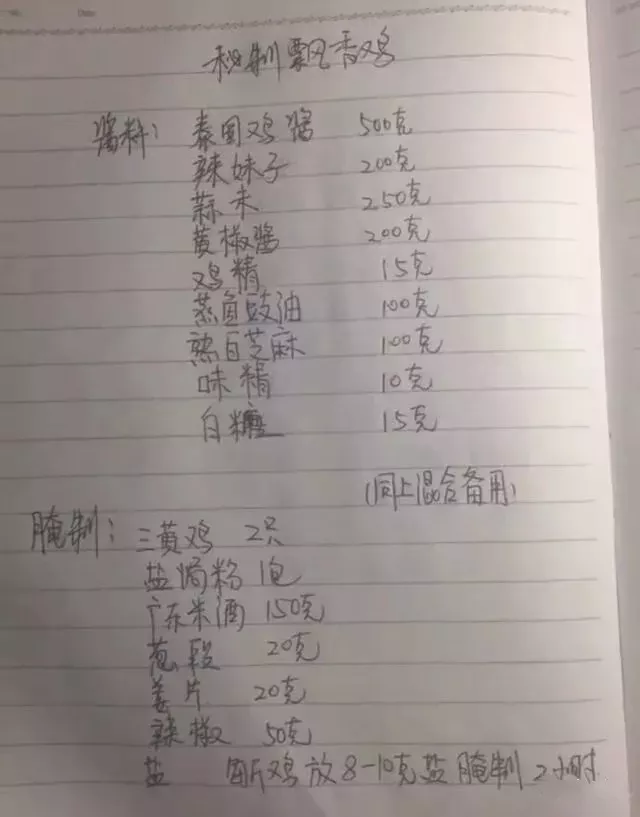 秘制飘香鸡
酱料: 泰国鸡酱 500克
辣妹子 200克
蒜末 250克
黄椒酱 200克
鸡精 15克
蒸鱼豉油 100克
熟白芝麻 100克
味精 10克
白糖 15克
(同上混合备用)
腌制: 三黄鸡 2只
盐焗粉 1包
广东米酒 150克
葱段 20克
姜片 20克
辣椒 50克
盐 每斤鸡放8-10克盐腌制2小时